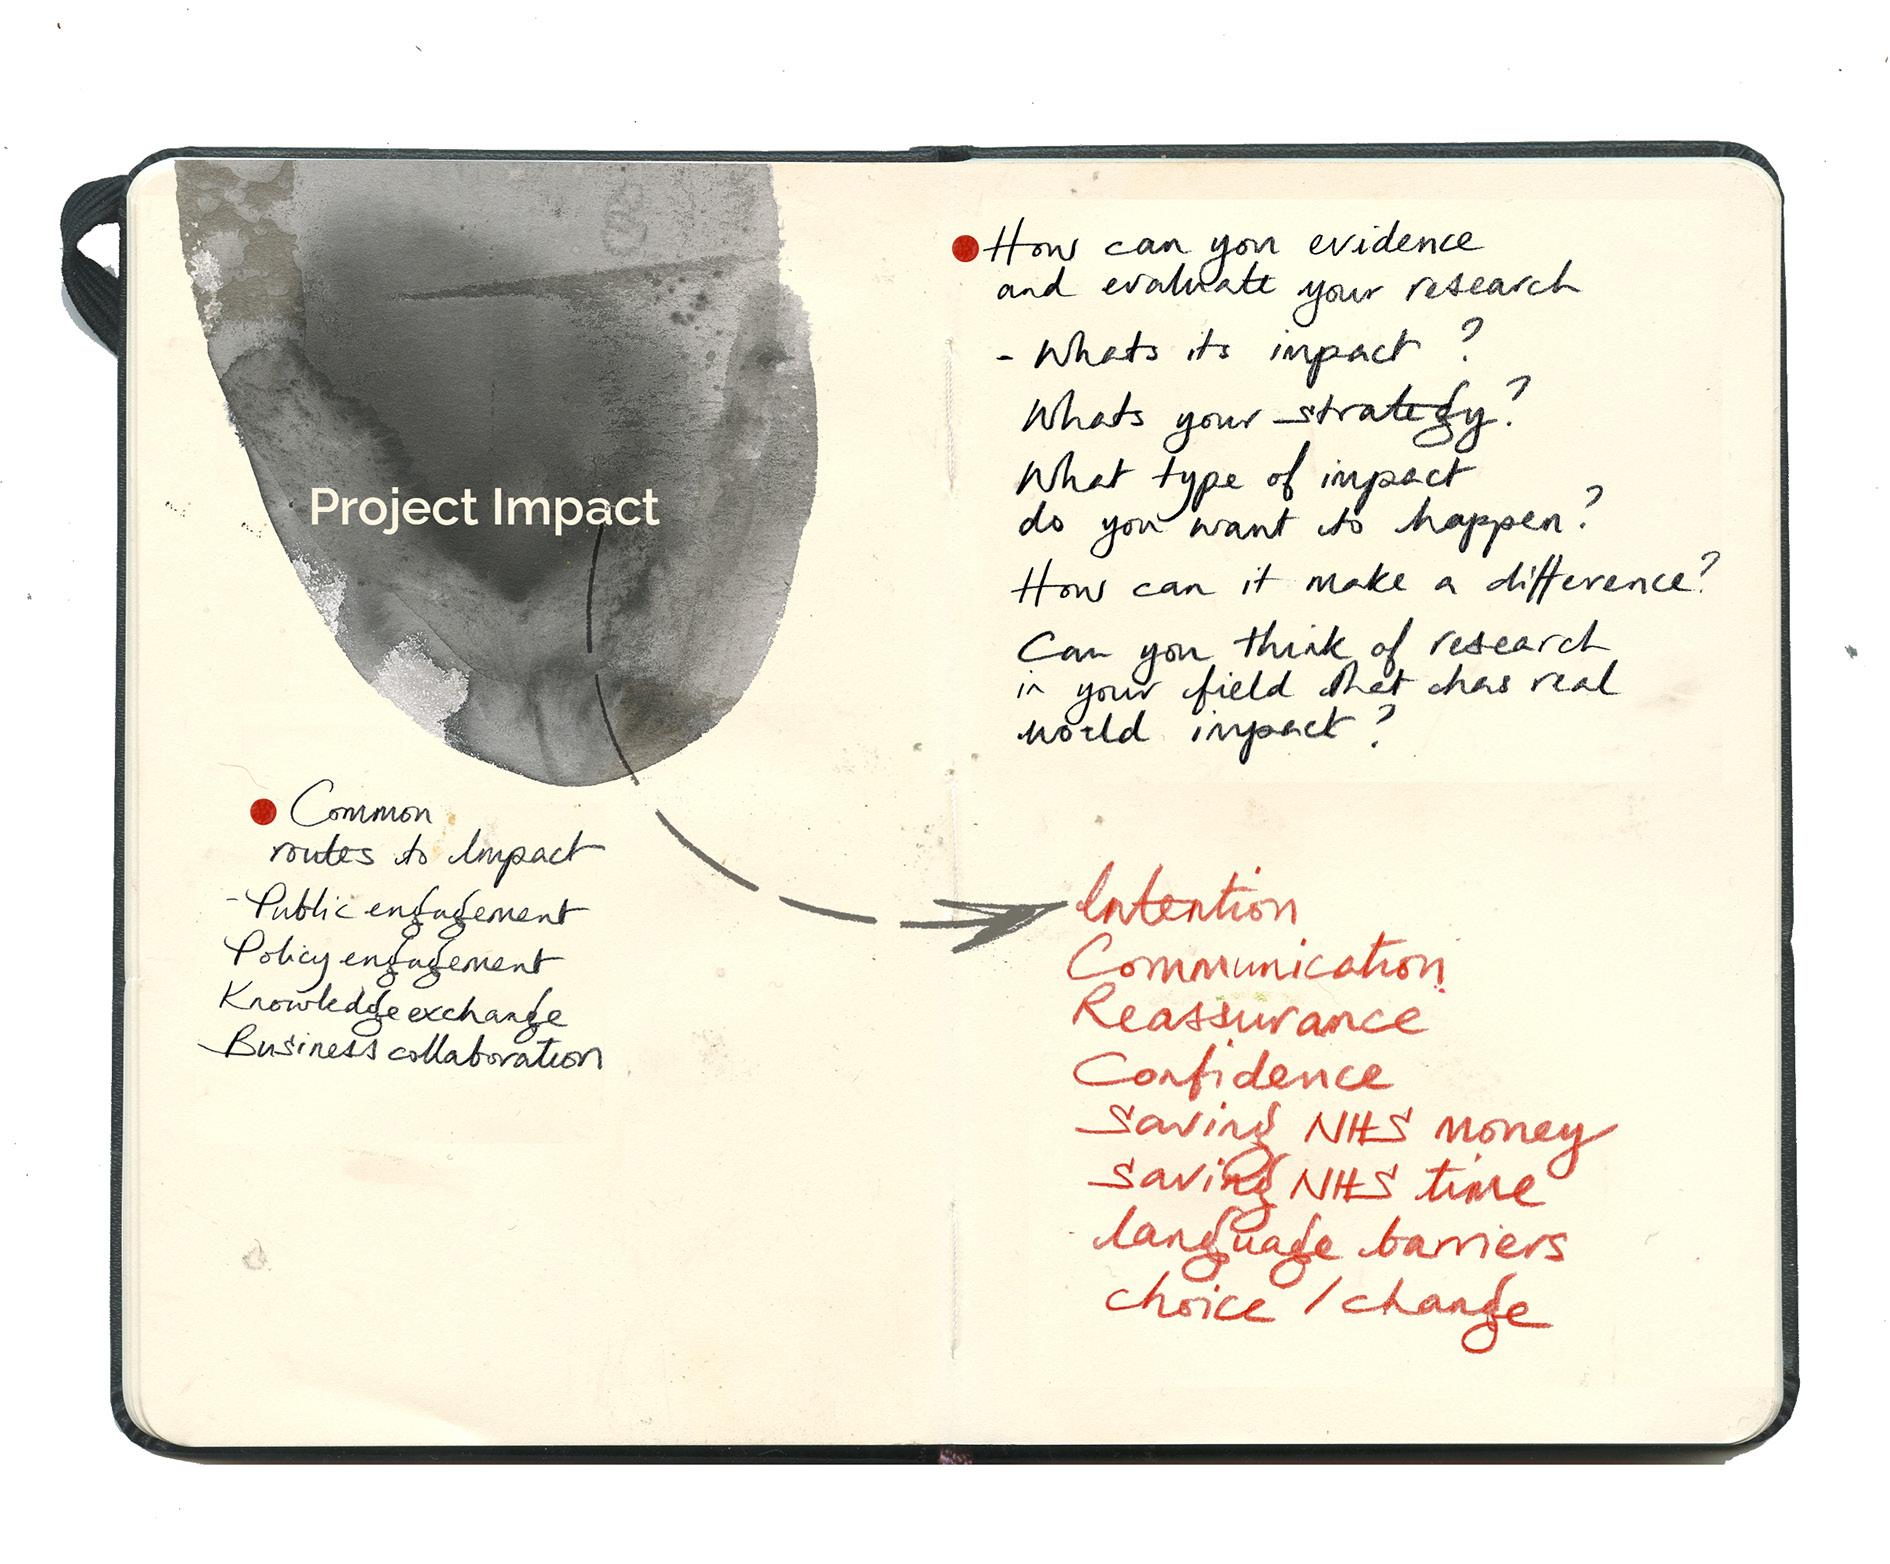 Project Impact
Common
routes to Impact
- Public engagement
Policy engagement
Knowledge exchange
Business collaboration
How can you evidence
and evaluate your research
- Whats its impact ?
Whats your strategy?
What type of impact
do you want to happen?
How can it make a difference?
Can you think of research
in your field that has real
world impact?
Intention
Communication
Reassurance
Confidence
Saving NHS money
Saving NHS time
language barriers
choice / change